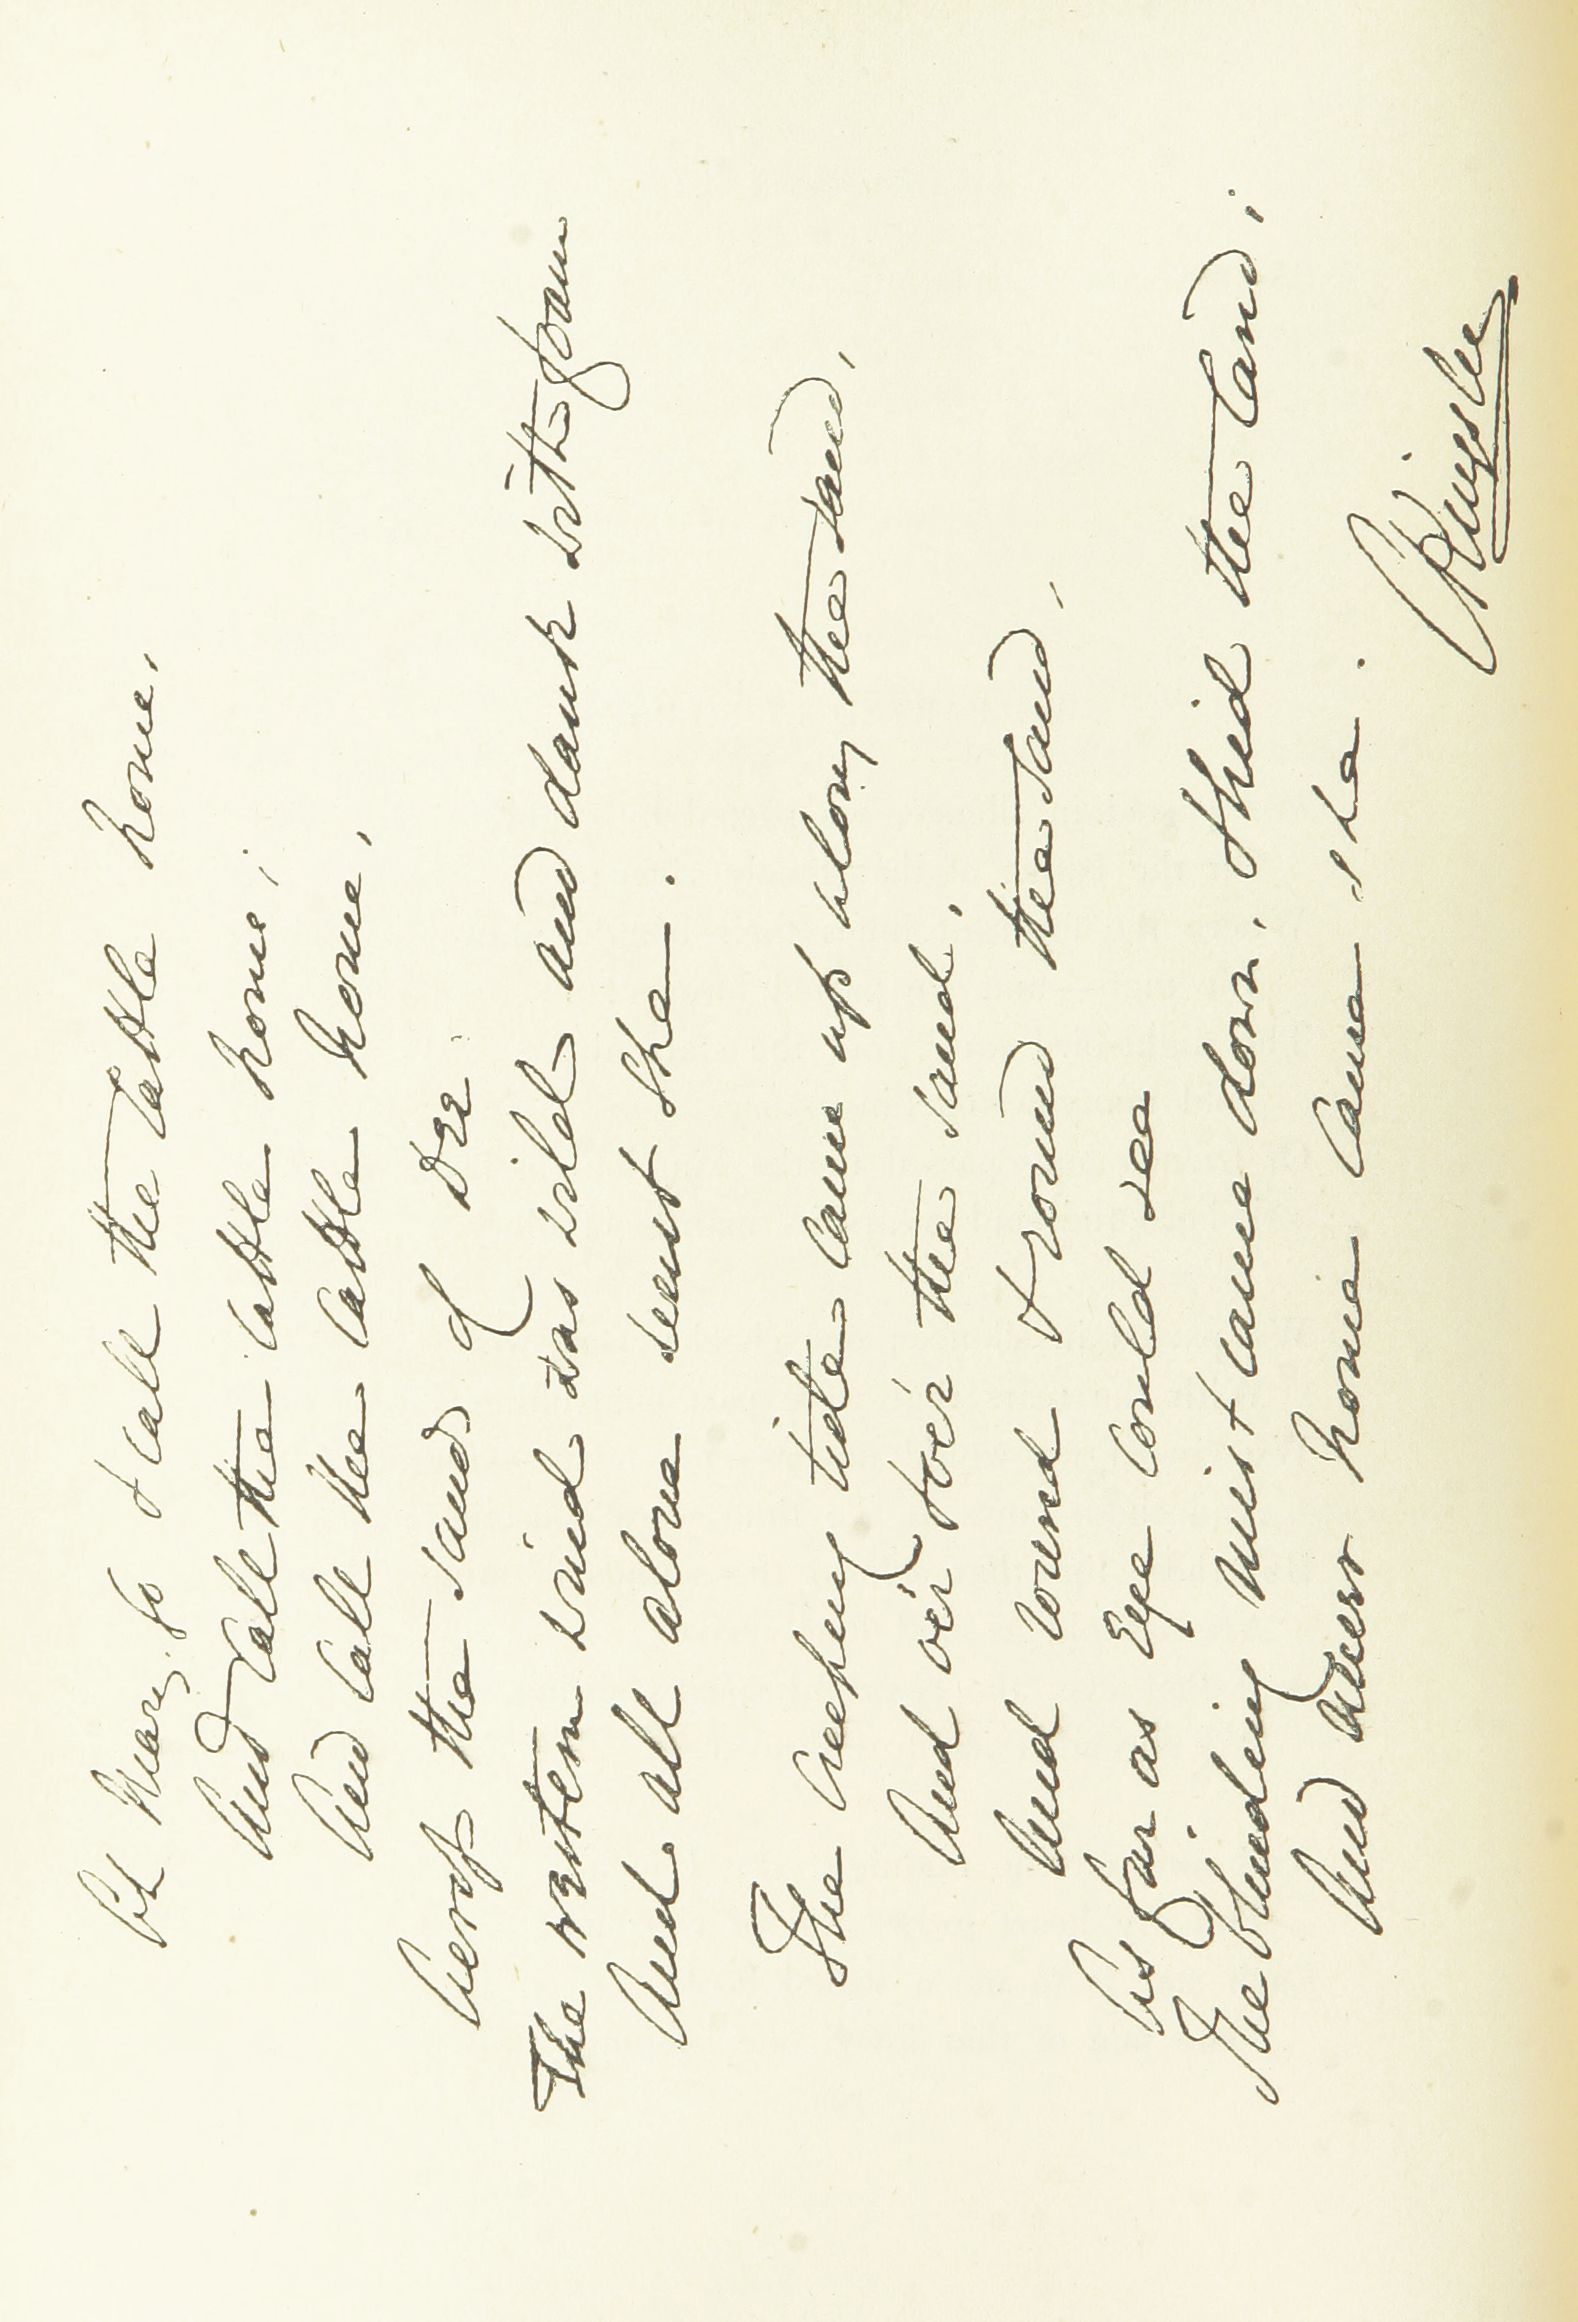 Oh Mary, go & call the cattle home,
And call the cattle home;
And call the cattle home,
Across the sands of Dee.
The western wind was wild and dank with foam
And all alone went she.
The creeping tide came up along the sand,
And o'er & o'er the sand,
And round & round the sand,
As far as Eye could see
The blinding mist came down, & hid the land;
And never home came she.
C Kingsley